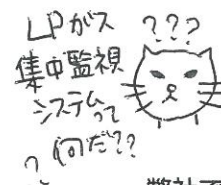 LPガス ???
集中監視
システムって
? 何だ??
弊社で